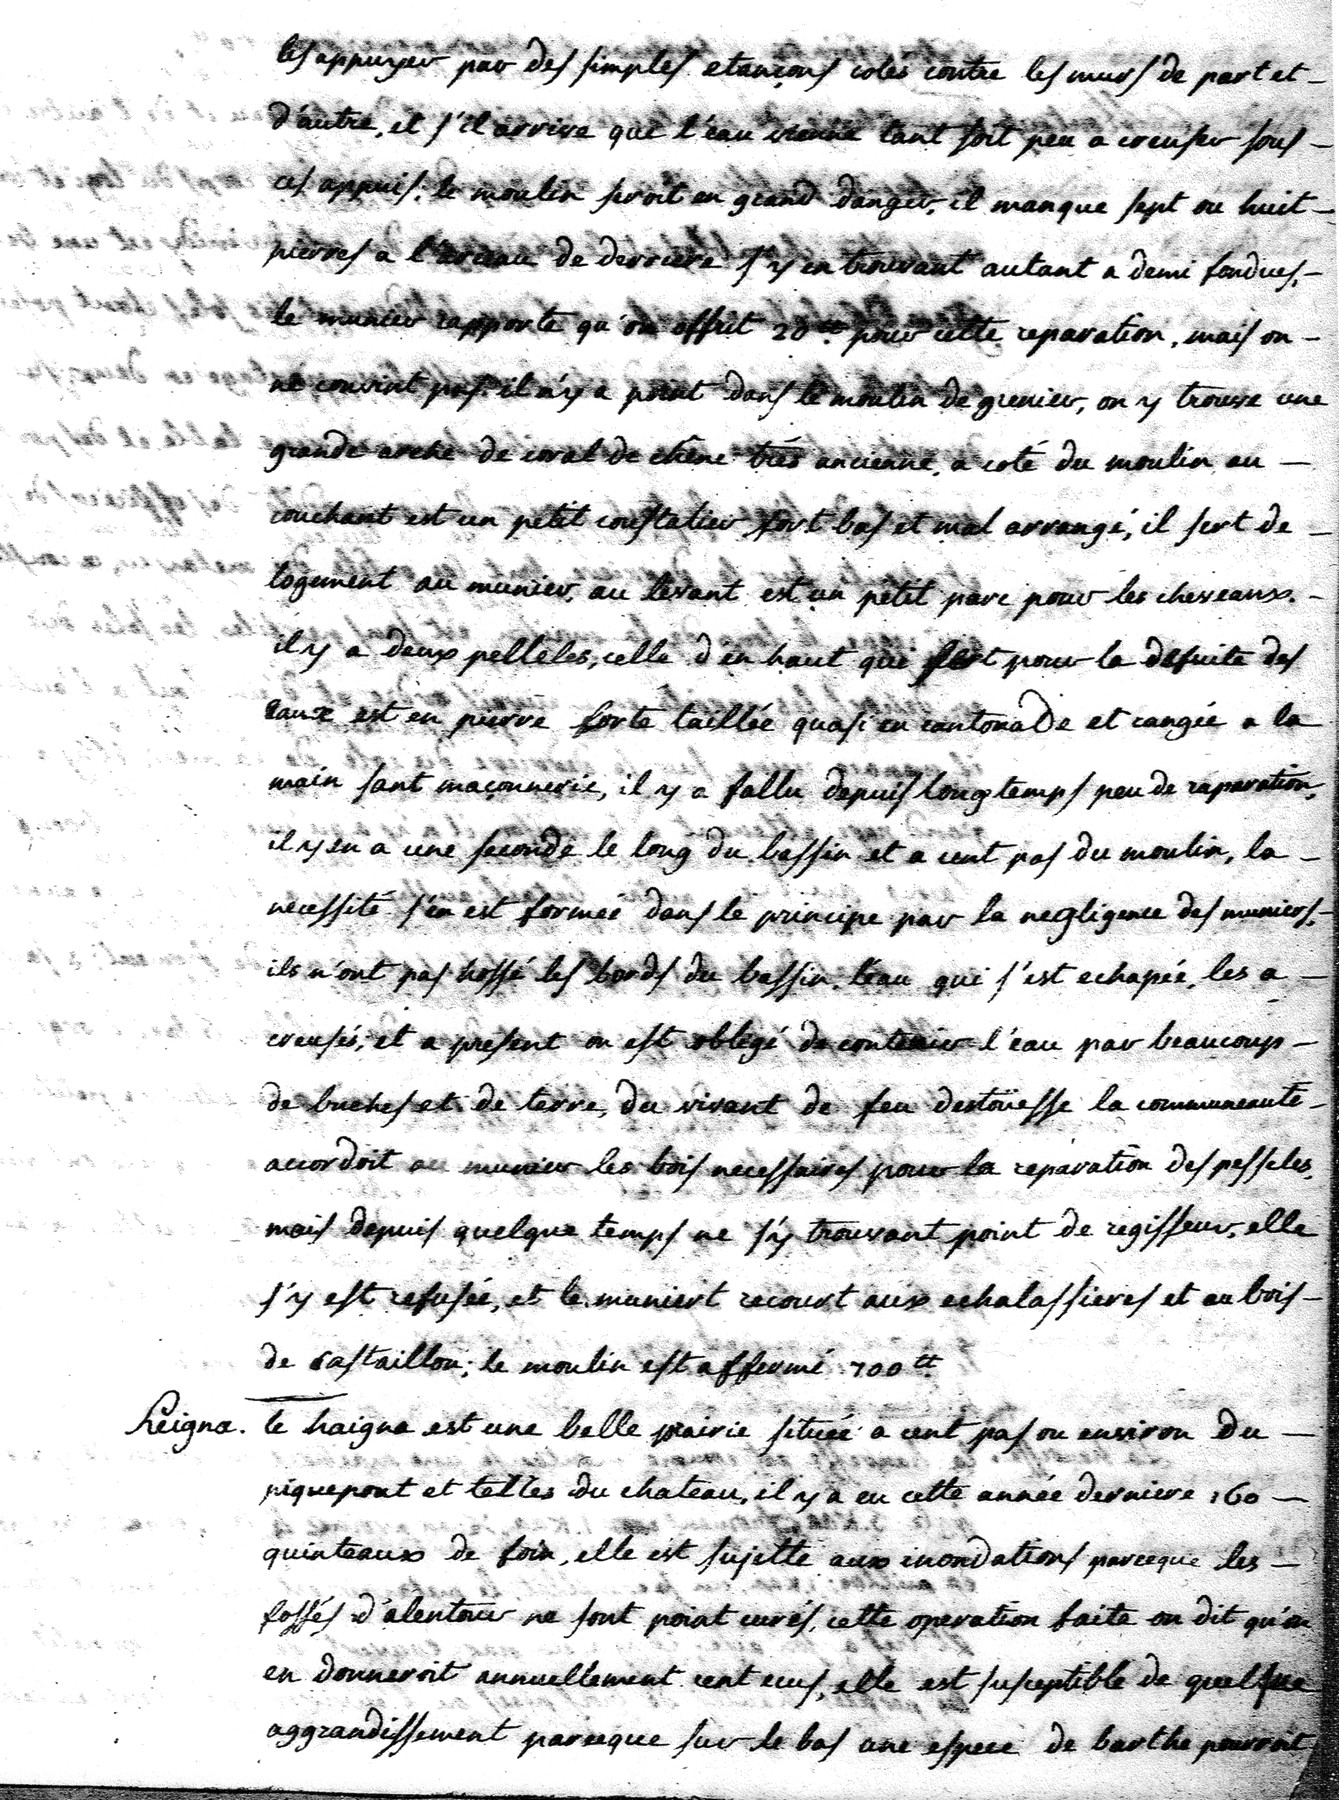 les appuyer par des simples etançons colés contre les murs de part et
d'autre, et s'il arrive que l'eau vienne tant soit peu a creuser sous
ces appuis, le moulin seroit en grand danger, il manque sept ou huit
pierres a l'arceau de derriere s'y en trouvant autant a demi fondues,
le munier rapporte qu'on offrit 20 tt. pour cette reparation, mais on
ne convint pas. il n'y a point dans le moulin de grenier, on y trouve une
grande arche de coral de chêne trés ancienne, a coté du moulin au
couchant est un petit coustatier fort bas et mal arrangé, il sert de
logement au munier, au levant est un petit parc pour les cheveaux.
il y a deux pelleles, celle d'en haut qui sert pour la defuite des
eaux est en pierre forte taillée quasi en cantonade et rangée a la
main sant maçonnerie, il y a fallu depuis longtemps peu de raparation,
il y en a une seconde le long du bassin et a cent pas du moulin, la
necessité s'en est formée dans le principe par la negligence des muniers,
ils n'ont pas hossé les bords du bassin, l'eau qui s'est echapée, les a
creusés, et a present on est obligé de contenir l'éau par beaucoup
de buches et de terre, du vivant de feu destouesse la communeauté
accordoit au munier les bois necessaires pour la reparation des pesseles,
mais depuis quelque temps ne s'y trouvant point de regisseur, elle
s'y est refusée, et le muniert recourt aux echalassieres et au bois
de castaillon; le moulin est affermé 700 tt.
heigna. le haigna est une belle prairie située a cent pas ou environ du
piquepout et telles du chateau, il y a eu cette année derniere 160
quinteaux de foin, elle est sujette aux inondations parceque les
fossés d'alentour ne sont point curés, cette operation faite on dit qu'on
en donneroit annuellement cent ecus, elle est susceptible de quelque
aggrandissement parceque sur le bas une espece de barthe pourroit